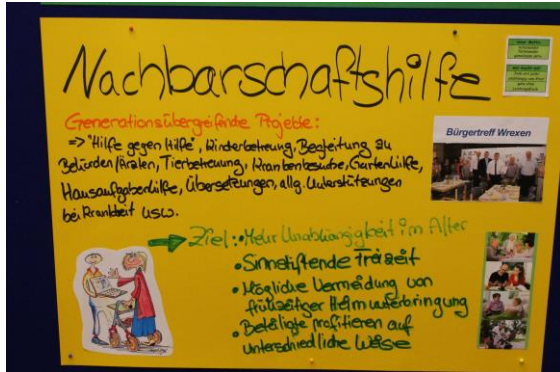 Nachbarschaftshilfe
Generationsübergreifende Projekte:
=> "Hilfe gegen Hilfe", Kinderbetreuung, Begleitung zu
Behörden/Ärzten, Tierbetreuung, Krankenbesuche, Gartenhilfe,
Hausaufgabenhilfe, Übersetzungen, allg. Unterstützungen
bei Krankheit usw.
Bürgertreff Wrexen
Ziel: • Mehr Unabhängigkeit im Alter
• Sinnstiftende Freizeit
• Mögliche Vermeidung von
frühzeitiger Heimunterbringung
• Beteiligte profitieren auf
unterschiedliche Weise